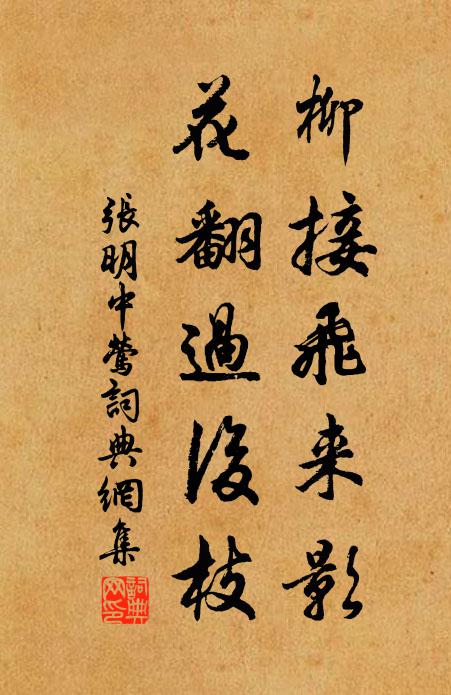 柳接飛来影
花翻過後枝
張明中鶯詞典網集
詞典網印